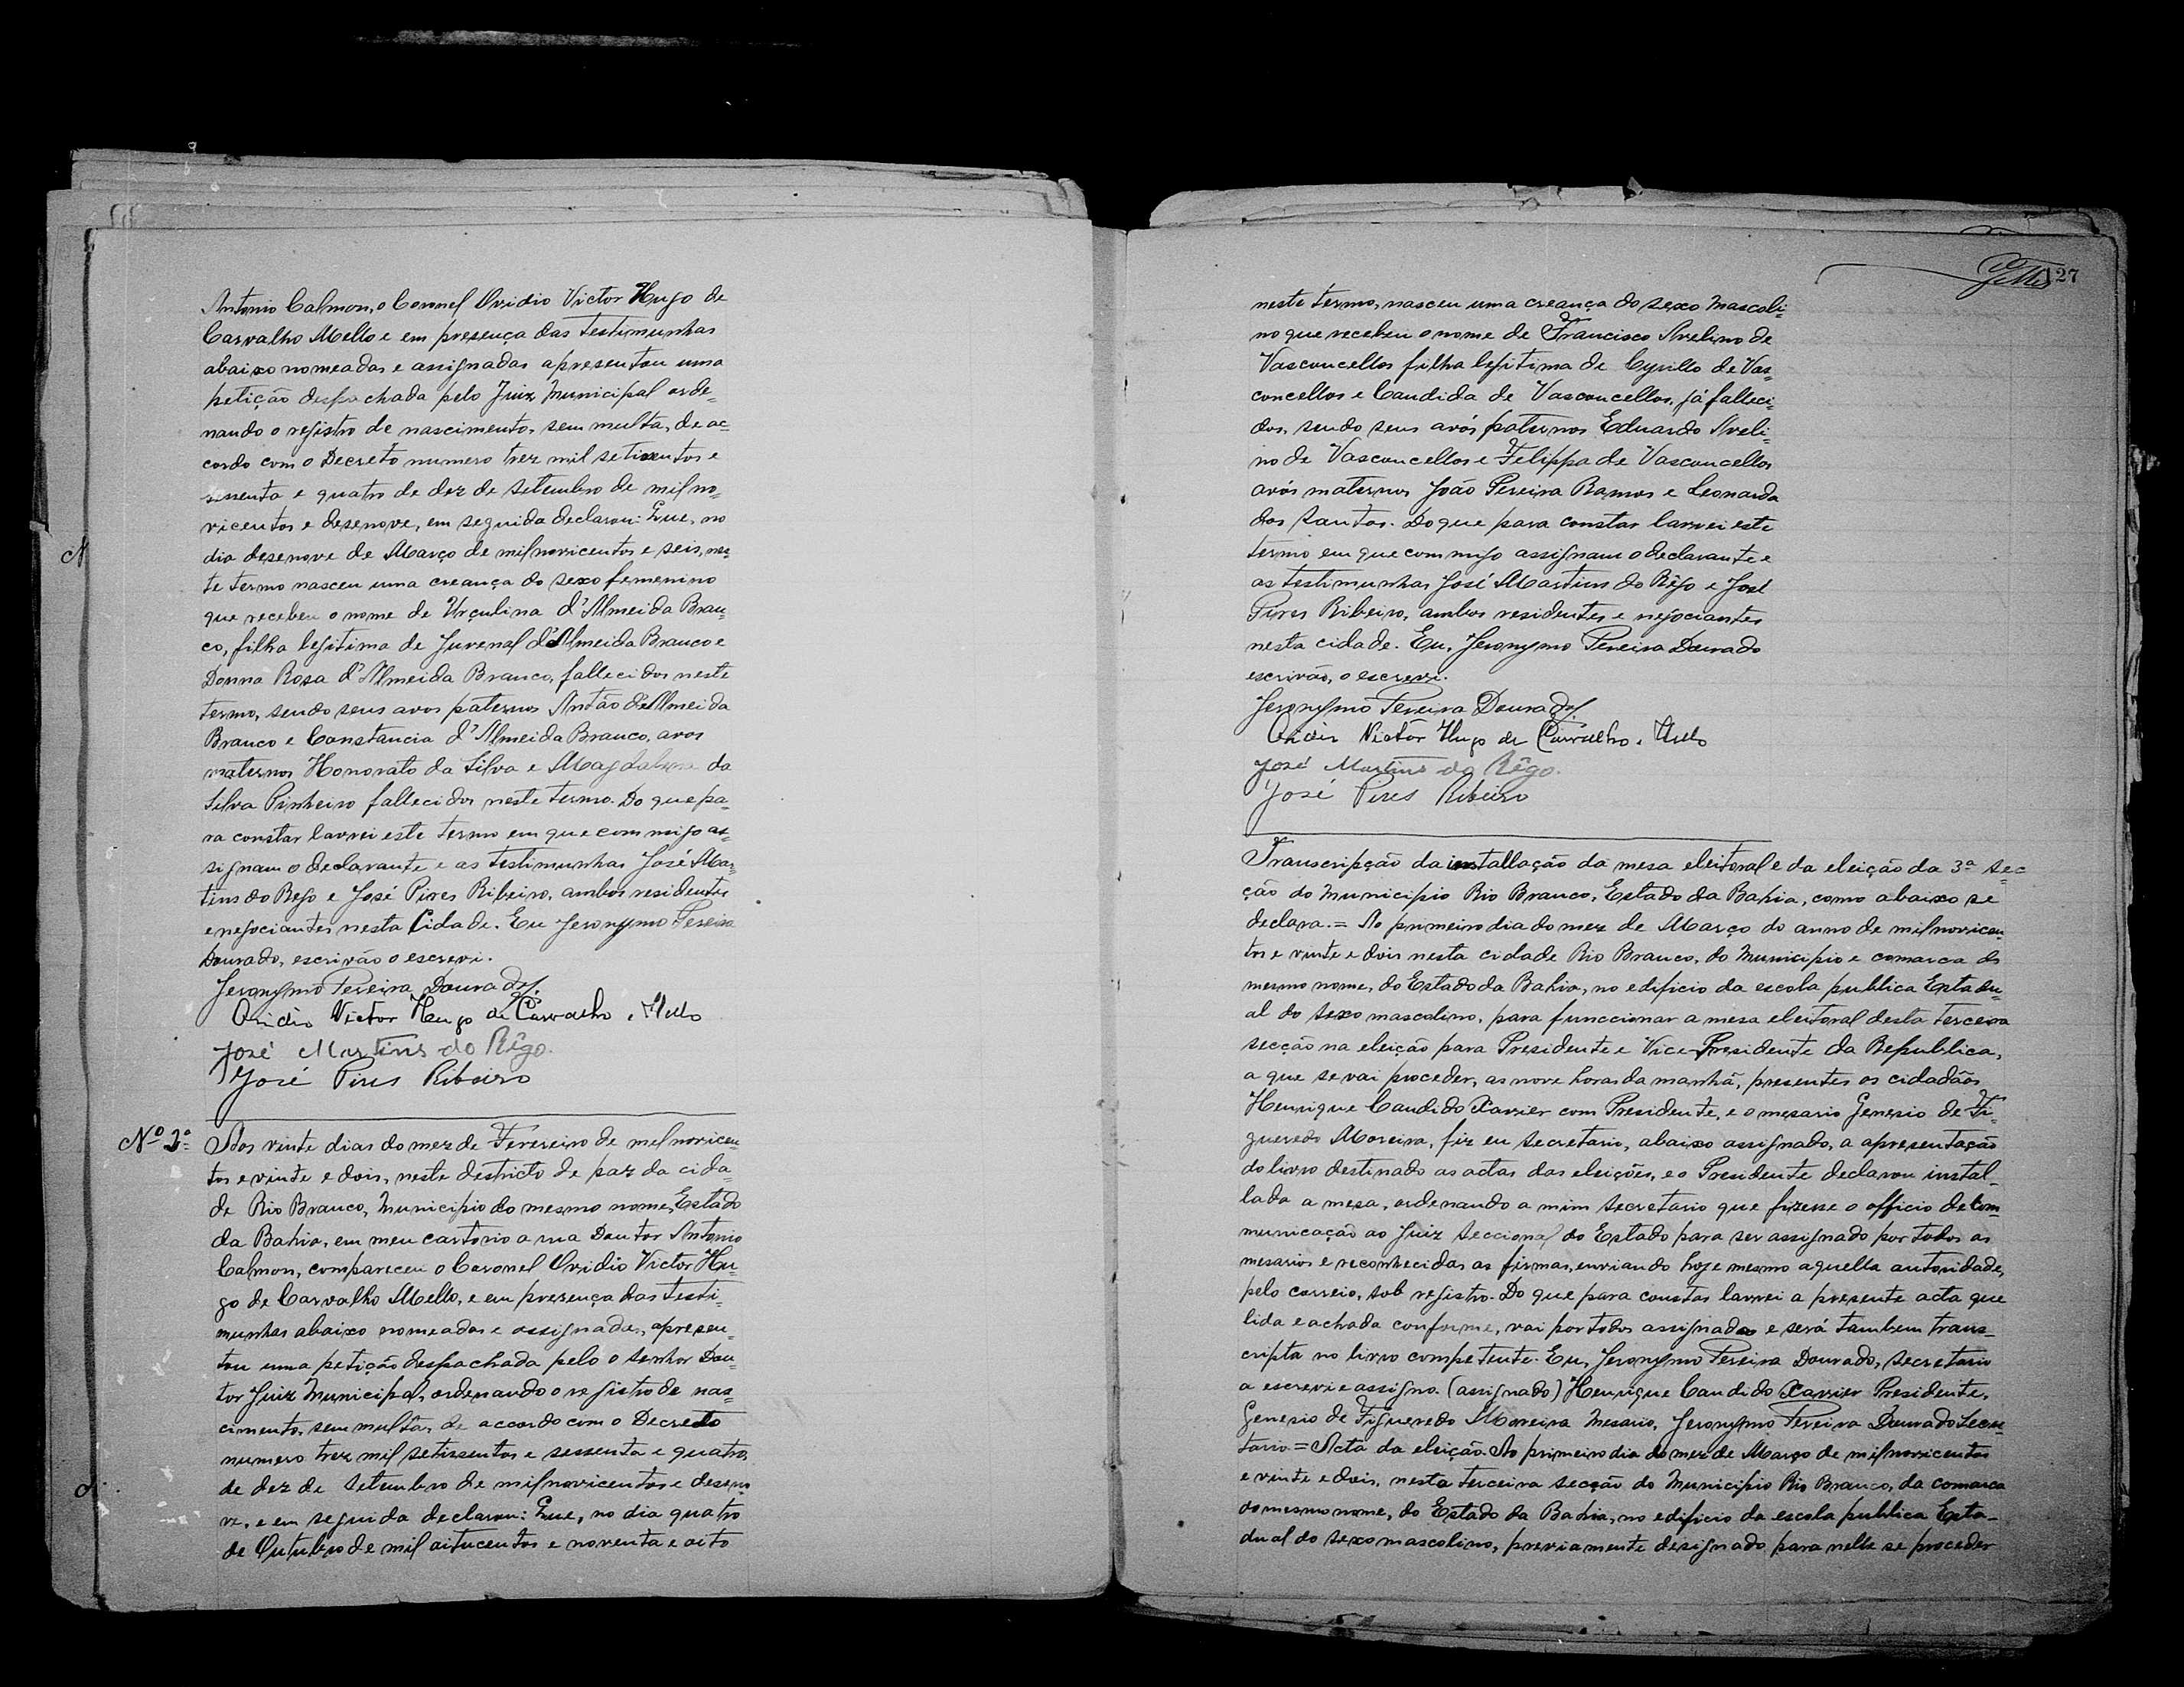 Antonio Calmon, o Coronel Ovidio Victor Hugo de
Carvalho Mello e em presença das testimunhas
abaixo nomeadas e assignadas apresentou uma
petição despachada pelo Juiz Municipal orde-
nando o registro de nascimento, sem multa, de ac-
cordo com o Decreto numero trez mil setissentos e
sessenta e quatro de dez de Setembro de mil no-
vicentos e desenove, em seguida declarou: Que, no
dia desenove de Março de mil novicentos e seis, nes-
te termo nasceu uma creança do sexo femenino
que recebeu o nome de Urçulina d'Almeida Bran-
co, filha legitima de Juvenal d'Almeida Branco e
Donna Rosa d'Almeida Branco, fallecidos neste
termo, sendo seus avos paternos Antão d'Almeida
Branco e Constancia d'Almeida Branco, avos
maternos Honorato da Silva e Magdalena da
Silva Pinheiro fallecidos neste termo. Do que pa-
ra constar lavrei este termo em que commigo as-
signam o declarante e as testimunhas José Mar-
tins do Rego e José Pires Ribeiro, ambos residentes
e negociantes nesta Cidade. Eu Jeronymo Pereira
Dourado, escrivão o escrevi.
Jeronymo Pereira Dourado.
Ovidio Victor Hugo de Carvalho e Mello
José Martins do Rêgo.
José Pires Ribeiro
Nº 2º
Aos vinte dias do mez de Fevereiro de mil novicen-
tos e vinte e dois, neste destricto de paz da cida-
de Rio Branco, Municipio do mesmo nome, Estado
da Bahia, em meu cartorio a rua Doutor Antonio
Calmon, compareceu o Coronel Ovidio Victor Hu-
go de Carvalho Mello, e em presença das testi-
munhas abaixo nomeadas e assignadas, apresen-
tou uma petição despachada pelo o Senhor Dou-
tor Juiz Municipal, ordenando o registro de nas-
cimento, sem multa, de accordo com o Decreto
numero trez mil setissentos e sessenta e quatro,
de dez de Setembro de mil novicentos e deseno-
ve, e em seguida declarou: Que, no dia quatro
de Outubro de mil oitucentos e noventa e oito
127
neste termo, nasceu uma creança do sexo mascoli-
no que recebeu o nome de Francisco Avelino de
Vasconcellos filha legitima de Cyrillo de Vas-
concellos e Candida de Vasconcellos, já falleci-
dos, sendo seus avós paternos Eduardo Aveli-
no de Vasconcellos e Felippa de Vasconcellos
avós maternos João Pereira Ramos e Leonarda
dos Santos. Do que para constar lavrei este
termo em que commigo assignam o declarante e
as testimunhas José Martins do Rêgo e José
Pires Ribeiro, ambos residentes e negociantes
nesta cidade. Eu, Jeronymo Pereira Dourado
escrivão, o escrevi.
Jeronymo Pereira Dourado.
Ovidio Victor Hugo de Carvalho e Mello
José Martins do Rêgo.
José Pires Ribeiro
Transcripção da installação da mesa eleitoral e da eleição da 3ª Sec-
ção do Municipio Rio Branco, Estado da Bahia, como abaixo se
declara. = Ao primeiro dia do mez de Março do anno de mil novicen-
tos e vinte e dois nesta cidade Rio Branco, do Municipio e comarca do
mesmo nome, do Estado da Bahia, no edificio da escola publica Estadu-
al do sexo mascolino, para funccionar a mesa eleitoral desta terceira
secção na eleição para Presidente e Vice-Presidente da Republica,
a que se vai proceder, as nove horas da manhã, presentes os cidadãos
Henrique Candido Xavier com Presidente, e o mesario Genesio de Fi-
gueredo Moreira, fiz eu Secretario, abaixo assignado, a apresentação
do livro destinado as actas das eleições, e o Presidente declarou instal-
lada a mesa, ordenando a mim Secretario que fizesse o officio de com-
municação ao Juiz Seccional do Estado para ser assignado por todos os
mesarios e reconhecidas as firmas, enviando hoje mesmo aquella autoridade,
pelo correio, sob registro. Do que para constar lavrei a presente acta que
lida e achada conforme, vai por todos assignada e será tambem trans-
cripta no livro competente. Eu, Jeronymo Pereira Dourado, Secretario
a escrevi e assigno. (assignado) Henrique Candido Xavier Presidente,
Genesio de Figueredo Moreira Mesario, Jeronymo Pereira Dourado Secre-
tario = Acta da eleição. Ao primeiro dia do mez de Março de mil novicentos
e vinte e dois, nesta terceira secção do Municipio Rio Branco, da comarca
do mesmo nome, do Estado da Bahia, no edificio da escola publica Esta-
dual do sexo mascolino, previamente designado para nelle se proceder